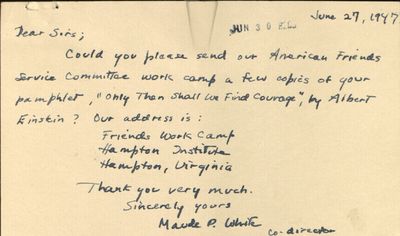 June 27, 1947.
JUN 30 REC'D
Dear Sirs;
Could you please send our American Friends
Service Committee work camp a few copies of your
pamphlet, "Only Then Shall We Find Courage", by Albert
Einstein? Our address is:
Friends Work Camp
Hampton Institute
Hampton, Virginia
Thank you very much.
Sincerely yours
Maude P. White
co-director